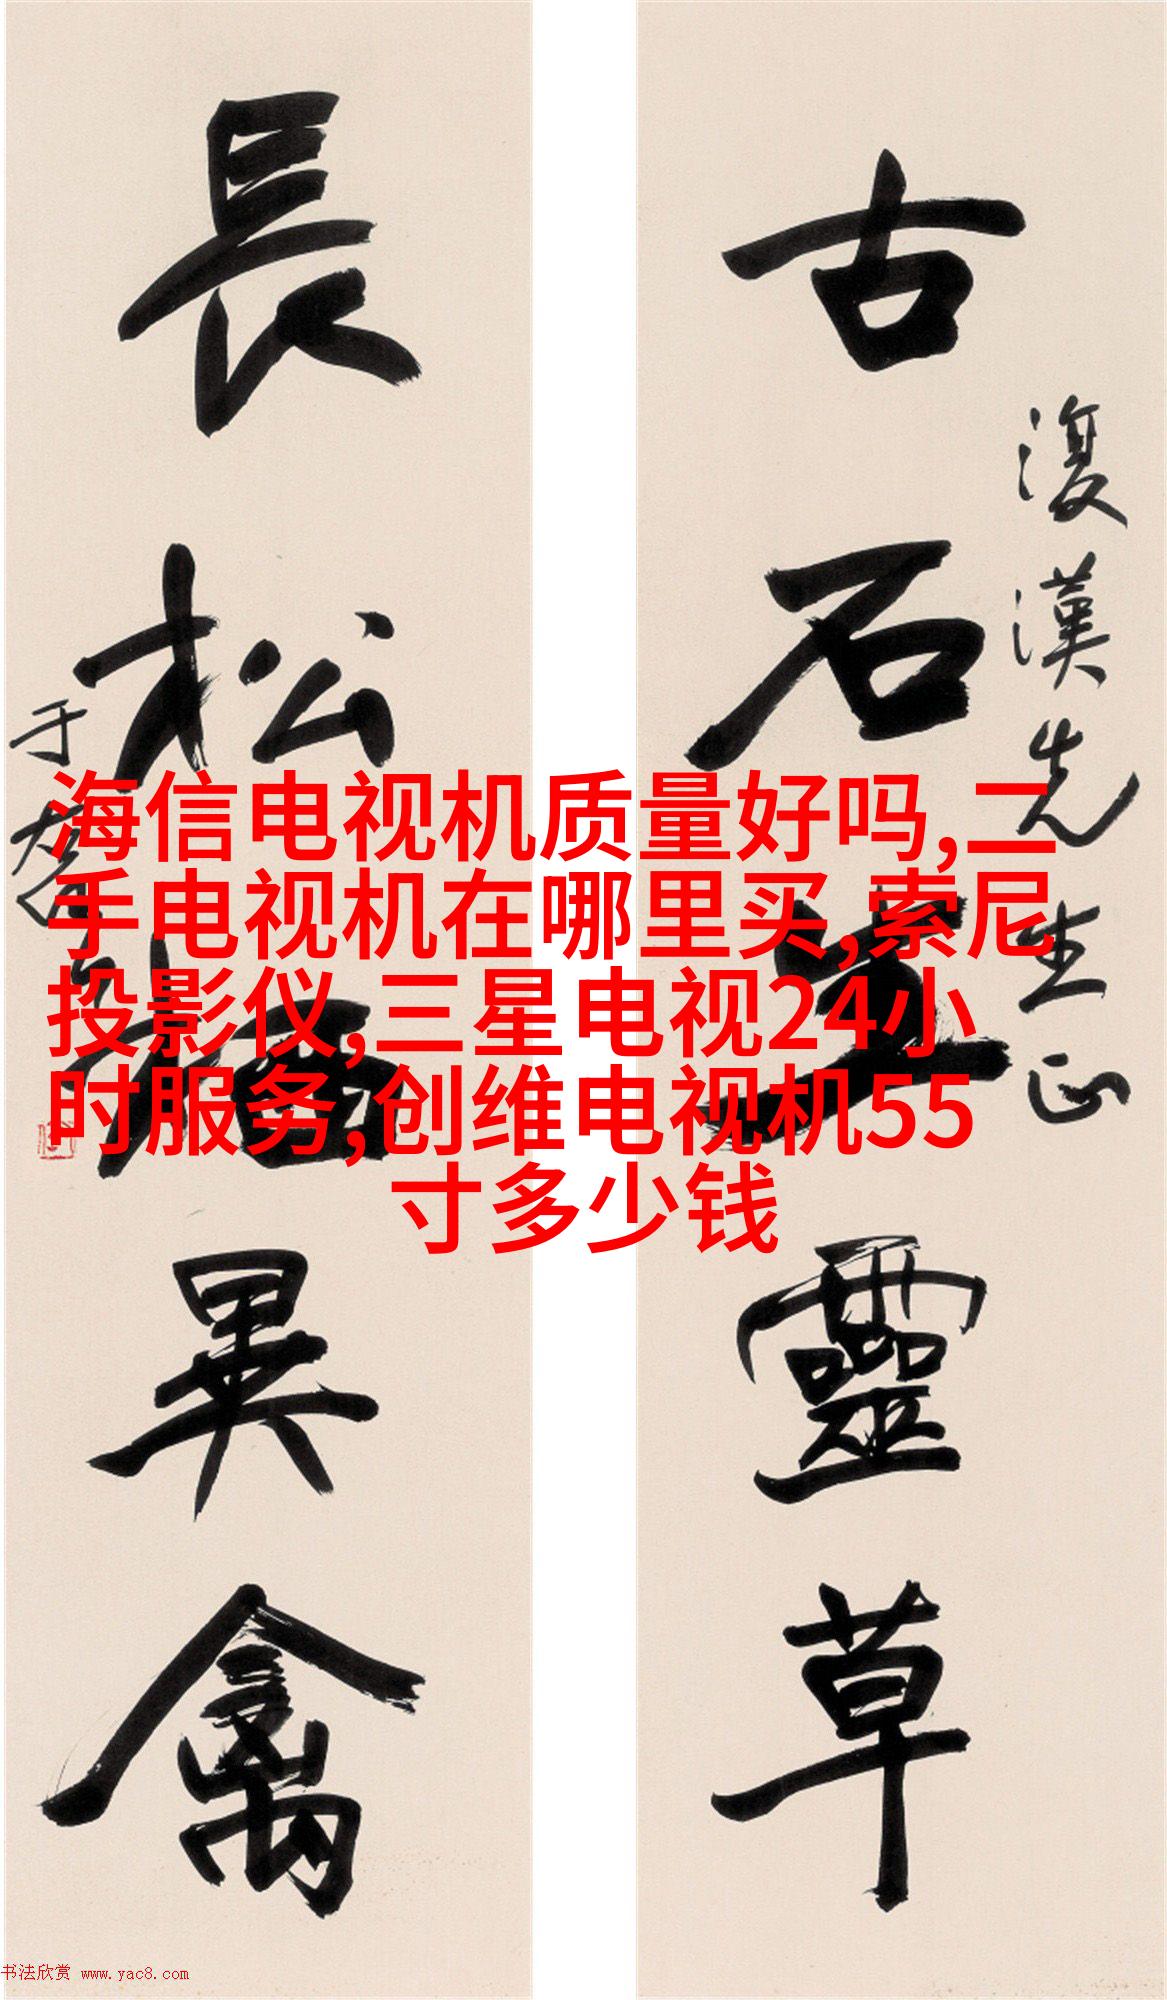 古石生靈草
復漢先生正
長松栖異禽
于右任
海信电视机质量好吗,二
手电视机在哪里买,索尼
投影仪,三星电视24小
时服务,创维电视机55
寸多少钱
书法欣赏 www.yac8.com